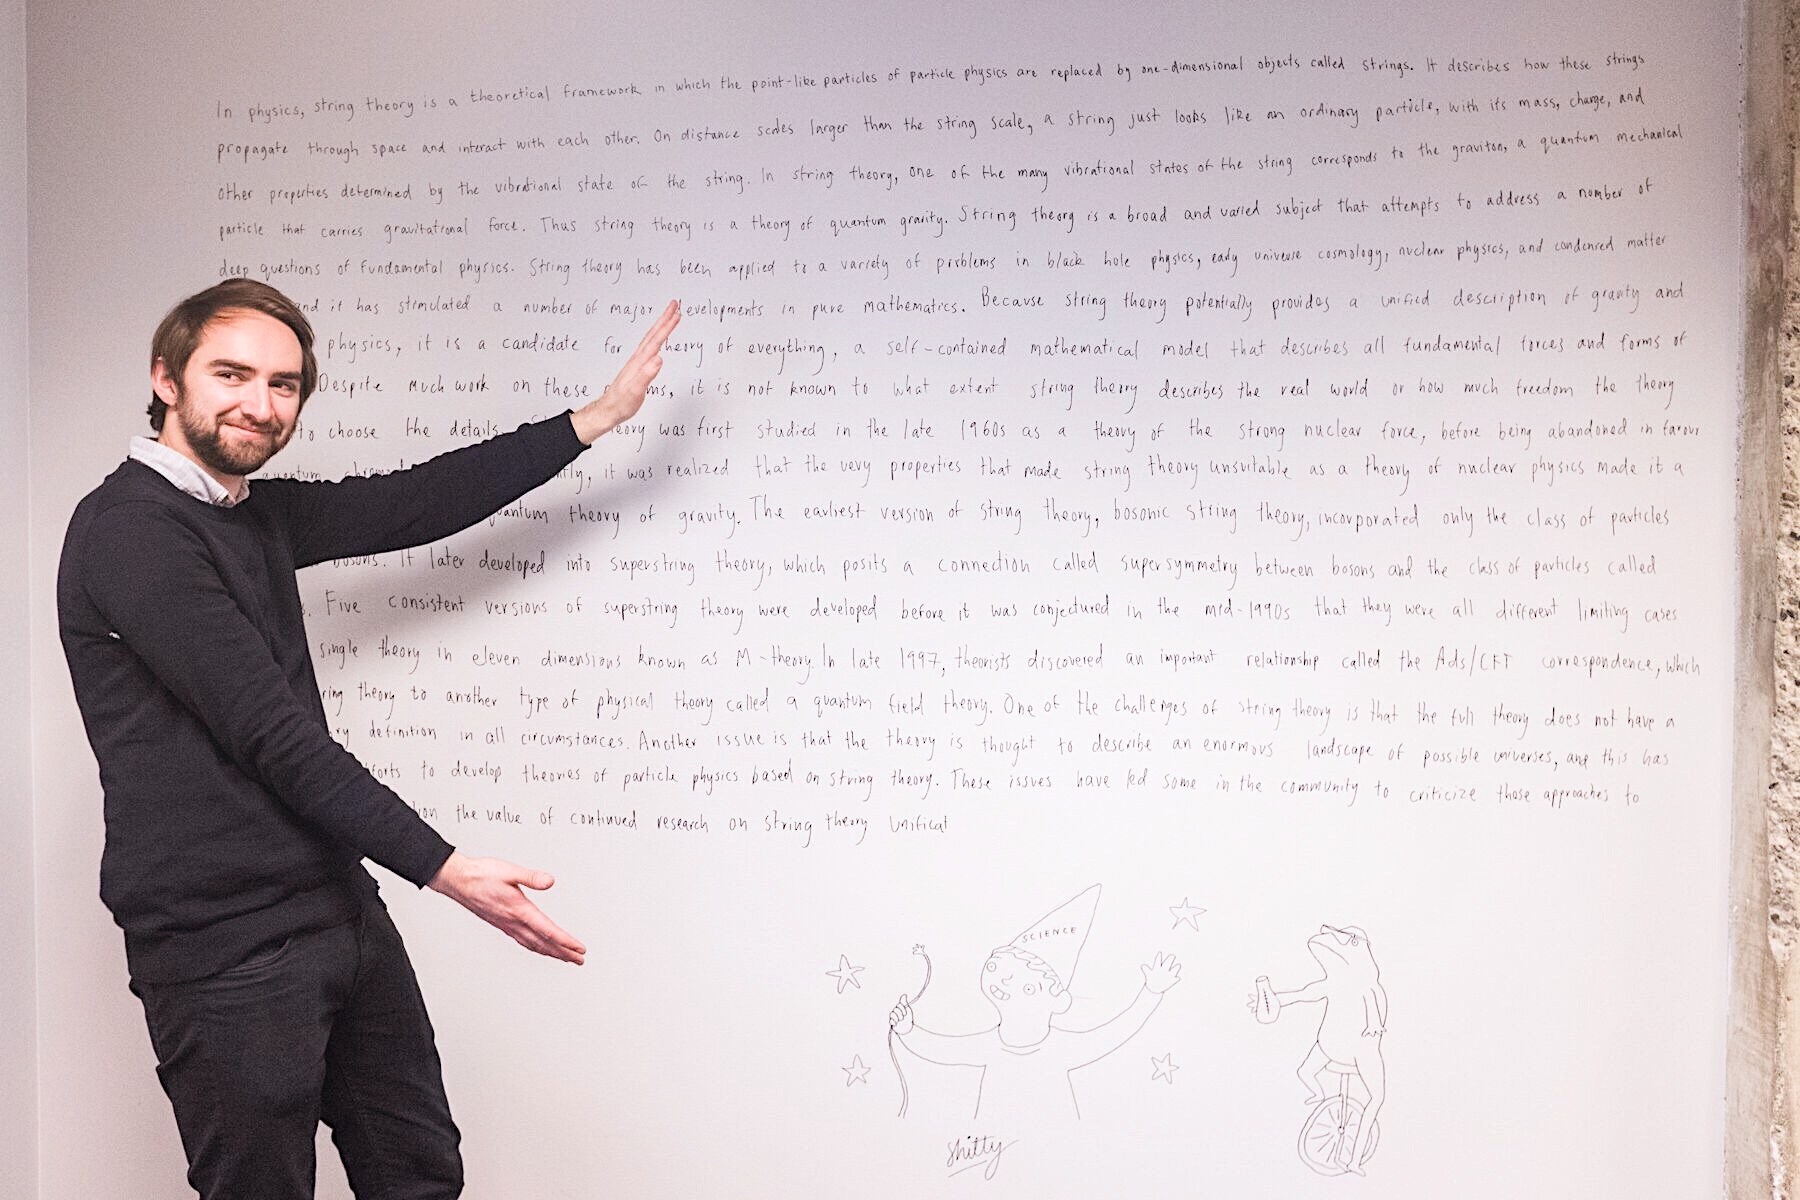 In physics, string theory is a theoretical framework in which the point-like particles of particle physics are replaced by one-dimensional objects called strings. It describes how these strings
propagate through space and interact with each other. On distance scales larger than the string scale, a string just looks like an ordinary particle, with its mass, charge, and
other properties determined by the vibrational state of the string. In string theory, one of the many vibrational states of the string corresponds to the graviton, a quantum mechanical
particle that carries gravitational force. Thus string theory is a theory of quantum gravity. String theory is a broad and varied subject that attempts to address a number of
deep questions of fundamental physics. String theory has been applied to a variety of problems in black hole physics, early universe cosmology, nuclear physics, and condensed matter
and it has stimulated a number of major developments in pure mathematics. Because string theory potentially provides a unified description of gravity and
physics, it is a candidate for theory of everything, a self-contained mathematical model that describes all fundamental forces and forms of
Despite much work on these ms, it is not known to what extent string theory describes the real world or how much freedom the theory
to choose the details. eory was first studied in the late 1960s as a theory of the strong nuclear force, before being abandoned in favour
quantum chrom ntly, it was realized that the very properties that made string theory unsuitable as a theory of nuclear physics made it a
quantum theory of gravity. The earliest version of string theory, bosonic string theory, incorporated only the class of particles
bosons. It later developed into superstring theory, which posits a connection called supersymmetry between bosons and the class of particles called
Five consistent versions of superstring theory were developed before it was conjectured in the mid-1990s that they were all different limiting cases
single theory in eleven dimensions known as M-theory. In late 1997, theorists discovered an important relationship called the Ads/CFT correspondence, which
ring theory to another type of physical theory called a quantum field theory. One of the challenges of string theory is that the full theory does not have a
ory definition in all circumstances. Another issue is that the theory is thought to describe an enormous landscape of possible universes, and this has
fforts to develop theories of particle physics based on string theory. These issues have led some in the community to criticize these approaches to
tion the value of continued research on string theory unificat
SCIENCE
shitty